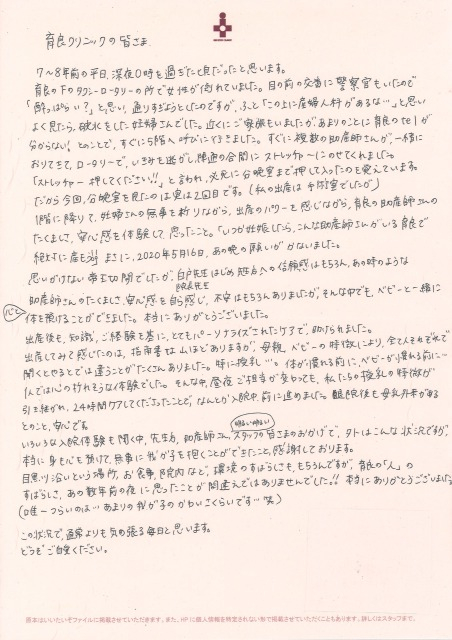 育良クリニックの皆さま
7〜8年前の平日、深夜0時を過ぎた頃だったと思います。
育良の下のタクシーロータリーの所で女性が倒れていました。目の前の交番に警察官もいたので
「酔っぱらい?」と思い、通りすぎようとしたのですが、ふと「この上に産婦人科があるな…」と思い
よく見たら、破水をした妊婦さんでした。近くにご家族もいましたが、あまりのことに育良のtelが
分からない!とのことで、すぐに5階へ呼びに行きました。すぐに複数の助産師さんが、一緒に
おりてきて、ロータリーで、いきみを逃がし、陣痛の合間にストレッチャーにのせてくれました。
「ストレッチャー押してください!!」と言われ、必死に分娩室まで押して入ったのを覚えています。
だから今回、分娩室を見たのは実は2回目です。(私の出産は手術室でしたが)
1階に降りて、妊婦さんの無事を祈りながら、出産のパワーを感じながら、育良の助産師さんの
たくましさ、安心感を体験して思ったこと。「いつか妊娠したら、こんな助産師さんがいる育良で
絶対に産もう!」まさに、2020年5月16日、あの晩の願いがかないました。
思いがけない帝王切開でしたが、白戸先生はじめ処方への信頼感はもちろん、あの時のような
院長先生
助産師さんのたくましさ、安心感を自ら感じ、不安はもちろんありましたが、そんな中でも、ベビーと一緒に
心と
体を預けることができました。本当にありがとうございました。
出産後も、知識、ご経験を基に、とてもパーソナライズされたケアで、助けられました。
出産してみて感じたのは、指南書は山ほどありますが、母親、ベビーの特徴により、全て人それぞれで
聞くとやるとでは違うことがたくさんありました。特に授乳…。体が慣れる前に、ベビーが慣れる前に…
1人では心の折れそうな体験でした。そんな中、昼夜ご担当が変わっても、私たちの授乳の特徴が
引き継がれ、24時間ケアしてくださったことで、なんとか入院中、前に進めました。退院後も母乳外来がある
とのこと、安心です。
いろいろな入院体験も聞く中、先生方、助産師さん、スタッフの皆さまのおかげで、外はこんな状況ですが、
明るい明るい
本当に身も心も預けて、無事に我が子を抱くことができたこと、感謝しております。
目黒川沿いという場所、お食事、院内など、環境のすばらしさも、もちろんですが、育良の「人」の
すばらしさ、あの数年前の夜に思ったことが間違えではありませんでした!!本当にありがとうございました
(唯一つらいのは…あまりの我が子のかわいさくらいです…笑)
この状況で、通常よりも気の張る毎日と思います。
どうぞご自愛ください。
原本はいいたいぞファイルに掲載させていただきます。また、HPに個人情報を特定されない形で掲載させていただくこともあります。詳しくはスタッフまで。